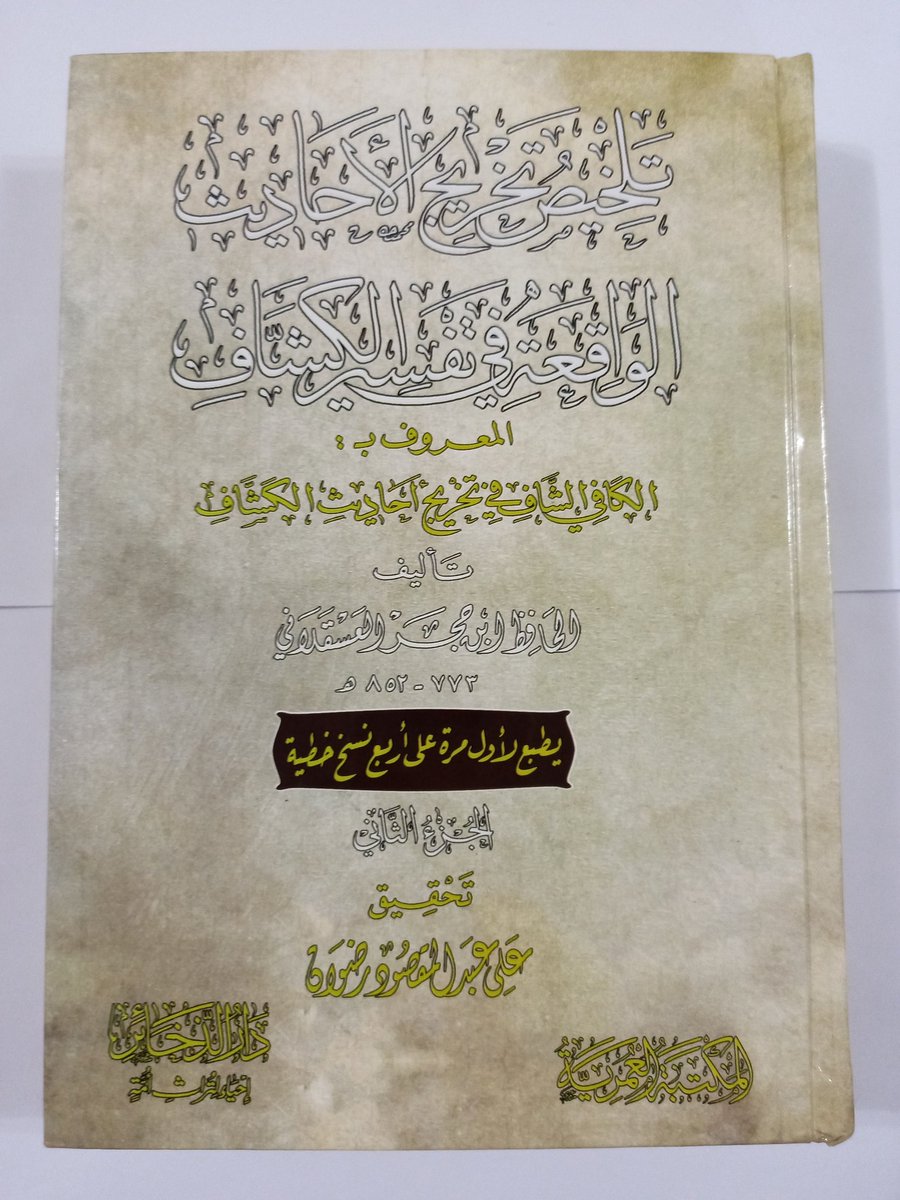 تَلخِيصُ تَخْرِيجِ الأَحَادِيثِ
الوَاقِعَةِ فِي تَفْسِيرِ الكَشَّافِ
المعروف بـ :
الكَافِي الشَّافِ فِي تَخْرِيجِ أَحَادِيثِ الكَشَّافِ
تَأليف
الحَافِظ ابن حَجَر العَسقلَاني
٧٧٣ - ٨٥٢ هـ
يطبع لأول مرة على أربع نسخ خطية
الجُزءُ الثَّاني
تَحْقِيق
عَلي عَبد المقصُود رضوَان
المكتبة العمرية
دَارُ الذَّخَائِر
إحياء لتراث أمة